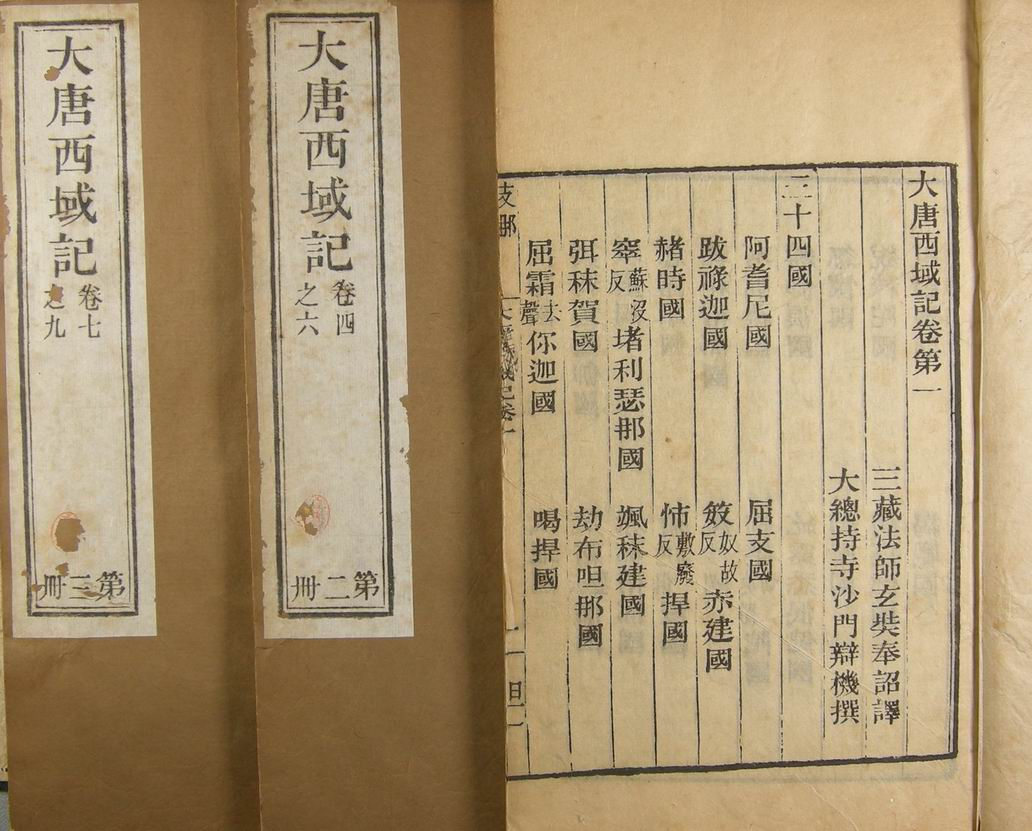 大唐西域記卷第一
三藏法師玄奘奉詔譯
大總持寺沙門辯機撰
三十四國
阿耆尼國 屈支國
跋祿迦國 笯奴故反赤建國
赭時國 㤄敷廢反捍國
窣蘇沒反堵利瑟那國 颯秣建國
弭秣賀國 劫布呾那國
屈霜去聲你迦國 喝捍國
支那
大唐西域記卷一
大唐西域記
卷四
之六
第二冊
大唐西域記
卷七
之九
第三冊